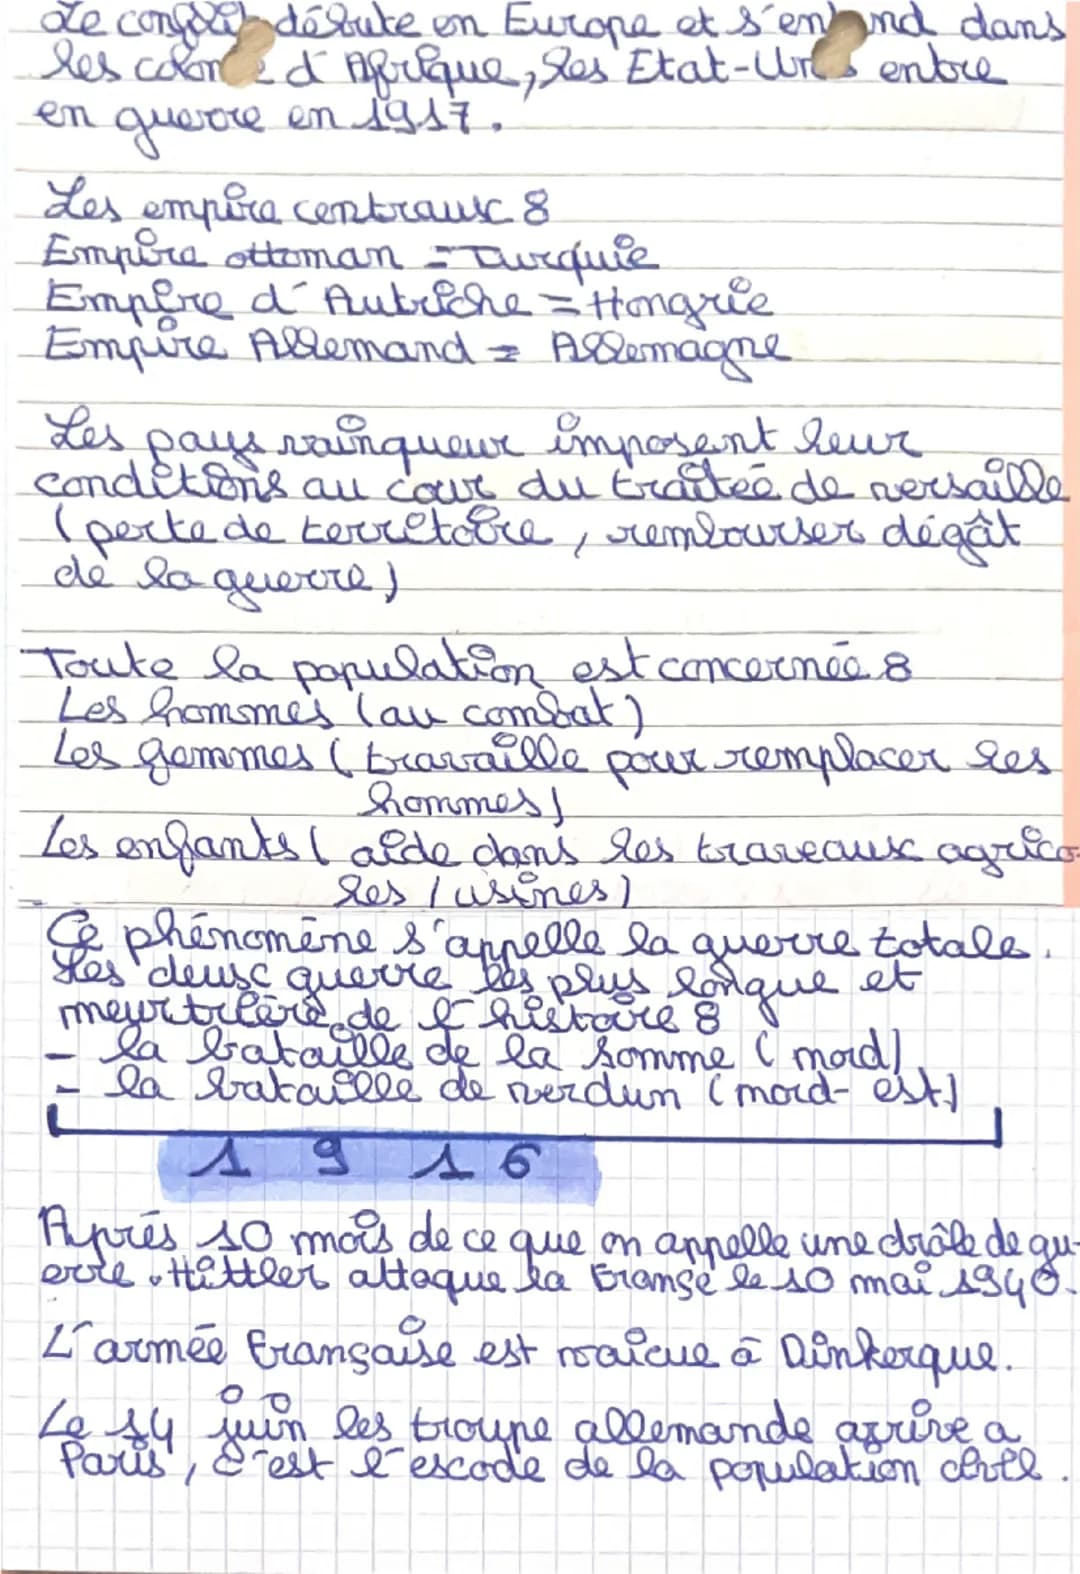 Le conflit débute en Europe et s'entend dans
les colonie d'Afrique, les Etat-Unis entre
en guerre en 1917.
Les empire centraux :
Empire ottoman = Turquie
Empire d'Autriche = Hongrie
Empire Allemand = Allemagne
Les pays vainqueur imposent leur
conditions au cour du traiteé de versaille
(perte de territoire, rembourser dégât
de la guerre)
Toute la population est concernée :
Les hommes (au combat)
Les femmes (travaille pour remplacer les
hommes)
Les enfants (aide dans les traveaux agrico-
les / usines)
Ce phénomène s'appelle la guerre totale.
Les deux guerre les plus longue et
meurtrière de l'histoire :
- la bataille de la somme (nord)
- la bataille de verdun (nord-est)
1916
Après 10 mois de ce que on appelle une drôle de gu-
erre. Hittler attaque la Françe le 10 mai 1940.
L'armée Française est vaicue à Dinkerque.
Le 14 juin les troupe allemande arrive a
Paris, c'est l'escode de la population civil.